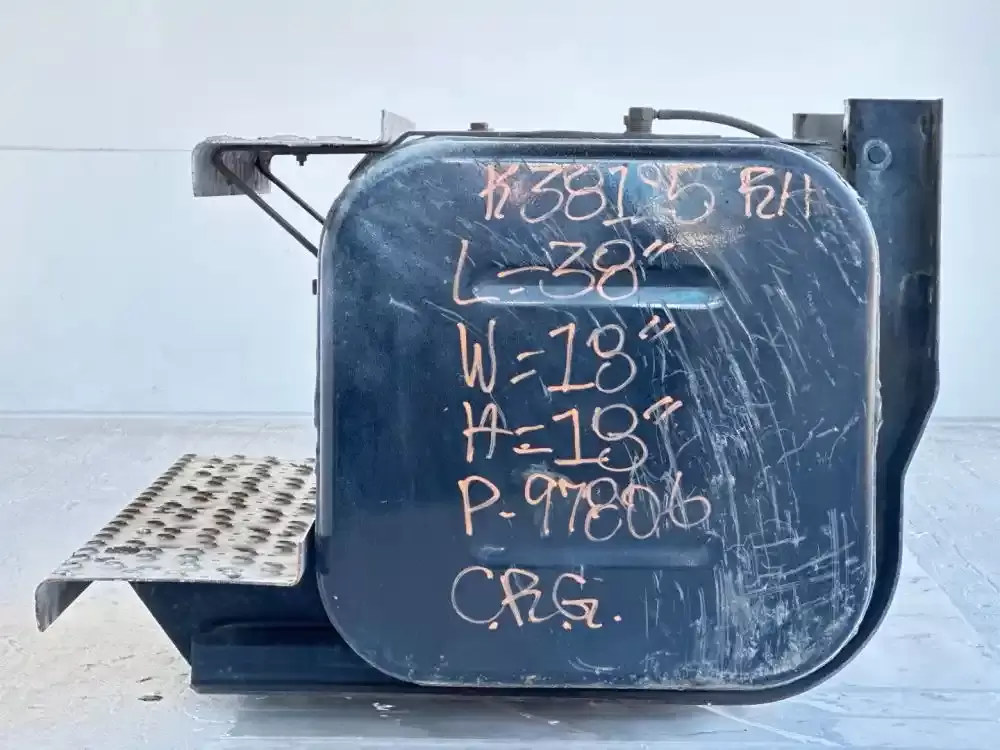 K3815 RH
L=38"
W=18"
H=18"
P-97806
C.R.G.